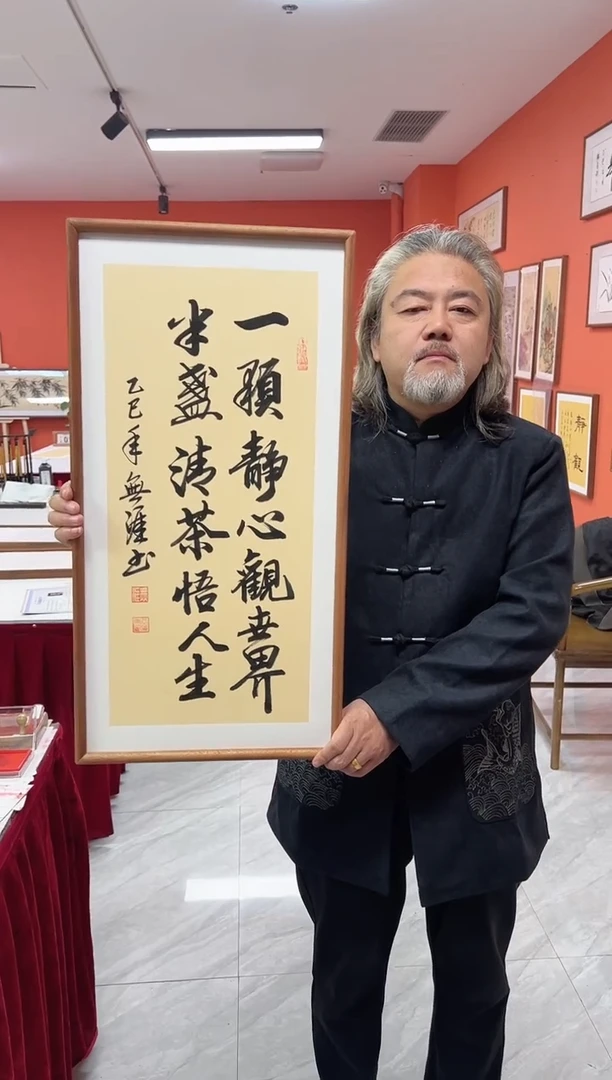 一顆靜心觀世界
半盞清茶悟人生
乙巳年無涯书
靜觀